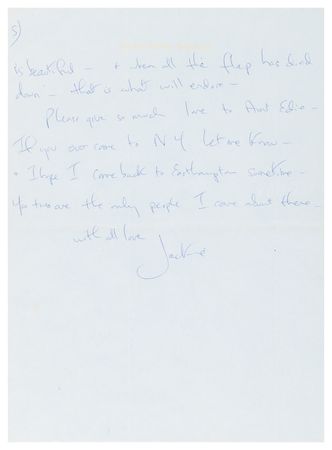 5)
is beautiful – + when all the flap has died
down – that is what will endure –
Please give so much love to Aunt Edie –
If you ever come to NY let me know –
+ I hope I come back to Easthampton sometime –
You two are the only people I care about there –
with all love
Jackie